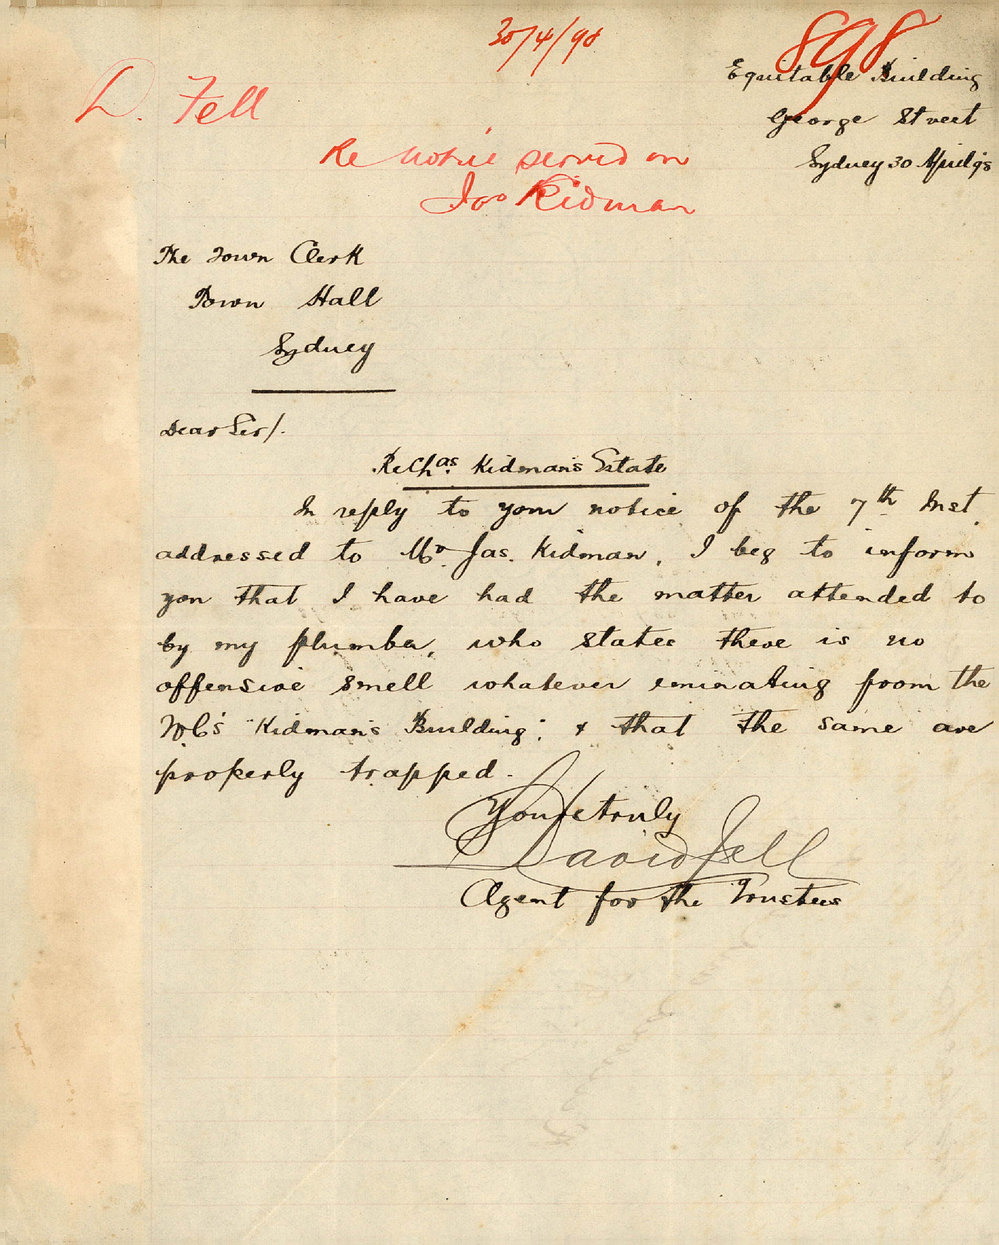 30/4/98
898
Equitable Building
George Street
Sydney 30 April 98
D. Fell
Re Notice served on
Jas Kidman
The Town Clerk
Town Hall
Sydney
Dear Sir/.
Re Chas. Kidman's Estate
In reply to your notice of the 7th Inst
addressed to Mr. Jas. Kidman, I beg to inform
you that I have had the matter attended to
by my plumber, who states there is no
offensive smell whatever eminating from the
W.C's "Kidman's Building", & that the same are
properly trapped.
Yours truly
David Fell
Agent for the Trustees